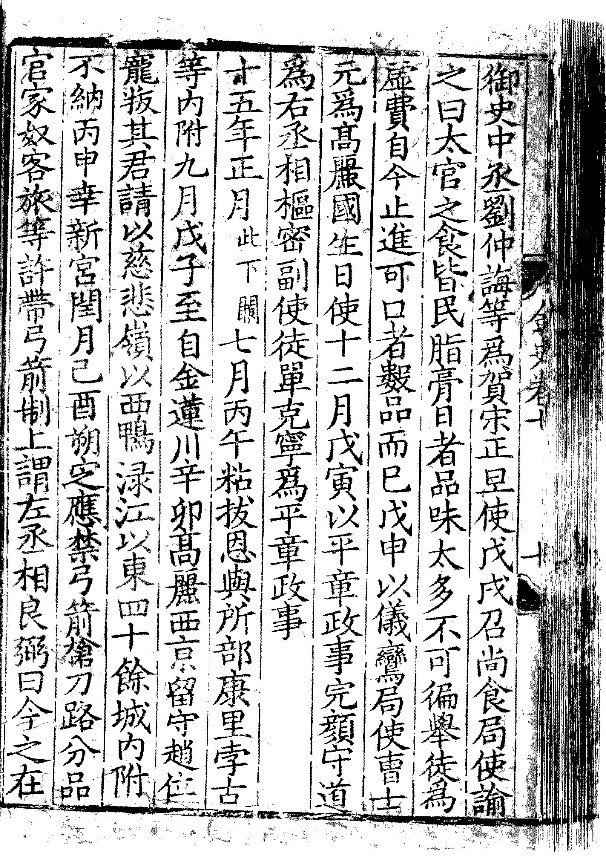 御史中丞劉仲誨等爲賀宋正旦使戊戌召尚食局使諭
之曰太官之食皆民脂膏日者品味太多不可徧舉徒爲
虛費自今止進可口者數品而已戊申以儀鸞局使曹士
元爲高麗國生日使十二月戊寅以平章政事完顔守道
爲右丞相樞密副使徒單克寧爲平章政事
十五年正月此下闕七月丙午粘拔恩與所部康里孛古
等內附九月戊子至自金蓮川辛卯高麗西京留守趙位
寵叛其君請以慈悲嶺以西鴨淥江以東四十餘城內附
不納丙申幸新宮閏月己酉朔定應禁弓箭槍刀路分品
官家奴客旅等許帶弓箭制上謂左丞相良弼曰今之在
金史卷十